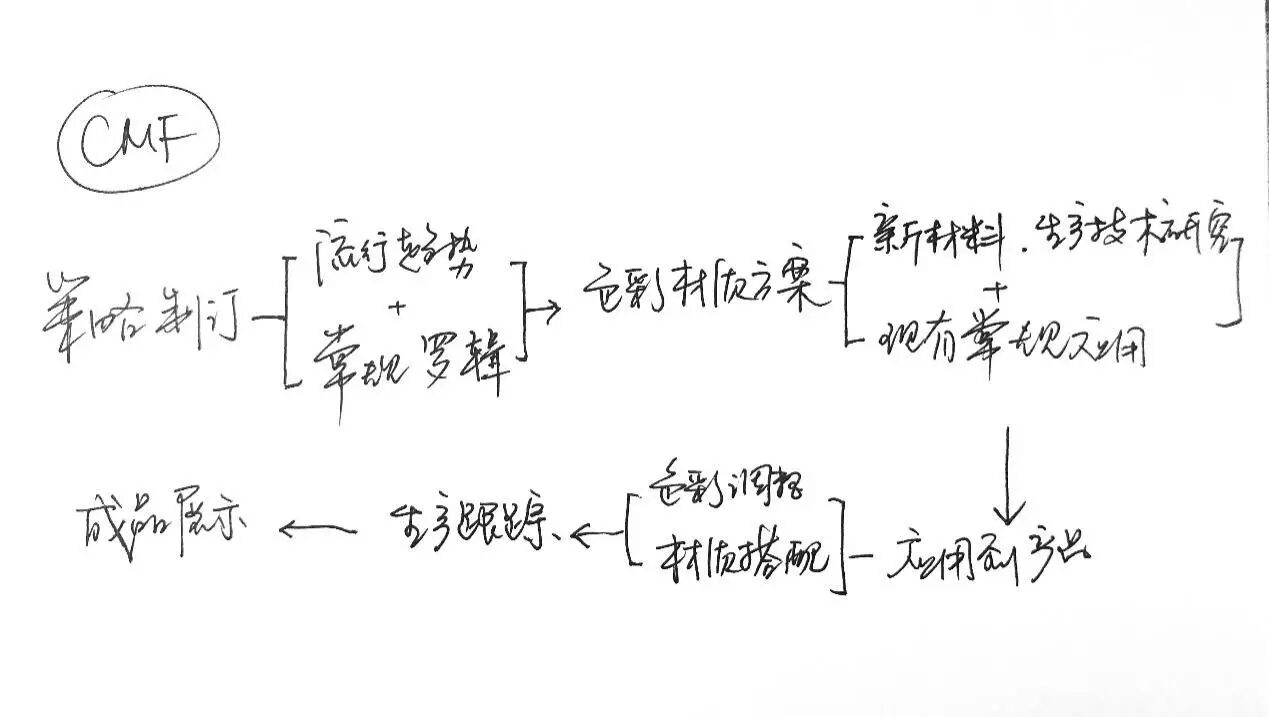 CMF
策略制订
流行趋势
+
常规罗辑
色彩材质方案
新材料.生产技术研究
+
现有常规应用
应用到产品
色彩调整
材质搭配
生产跟踪
成品展示